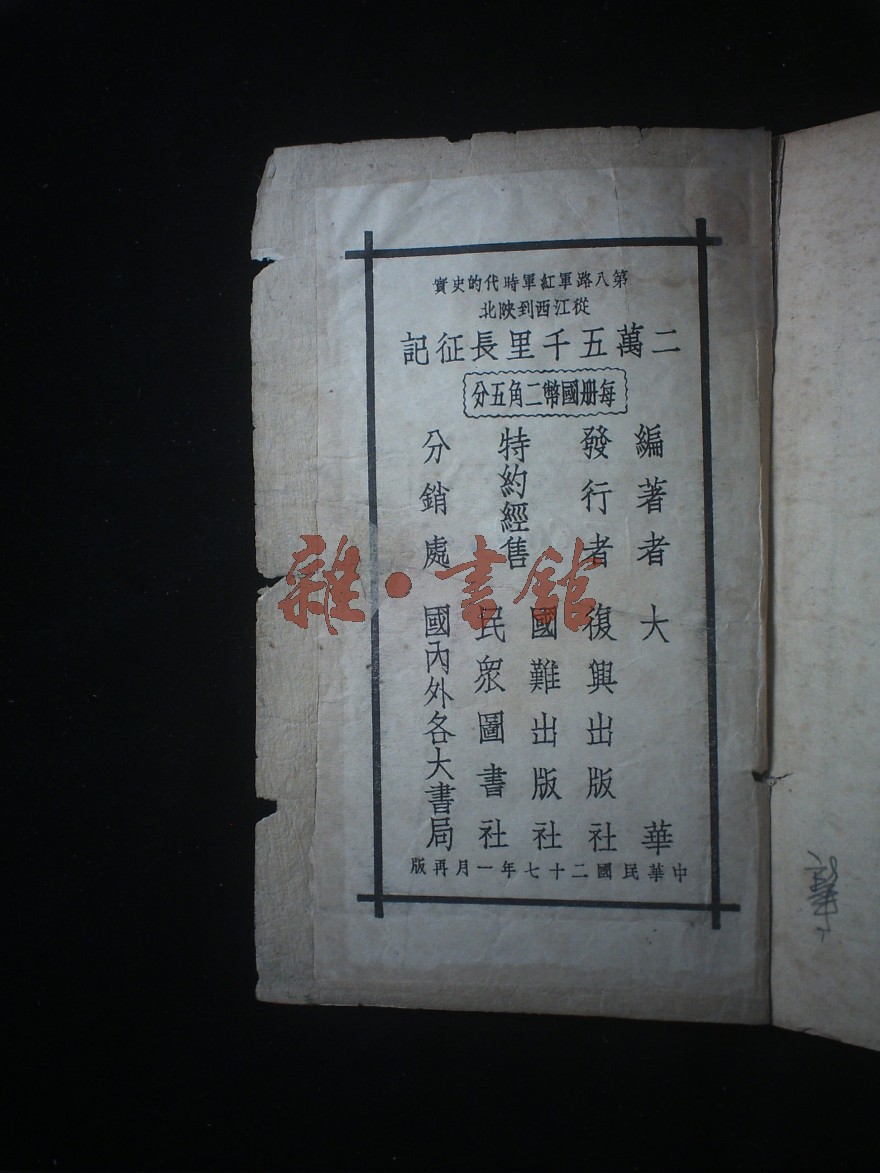 第八路軍紅軍時代的史實
從江西到陝北
二萬五千里長征記
每册國幣二角五分
編著者 大華
發行者 復興出版社
特約經售 國難出版社
民衆圖書社
分銷處 國內外各大書局
中華民國二十七年一月再版
雜·書館